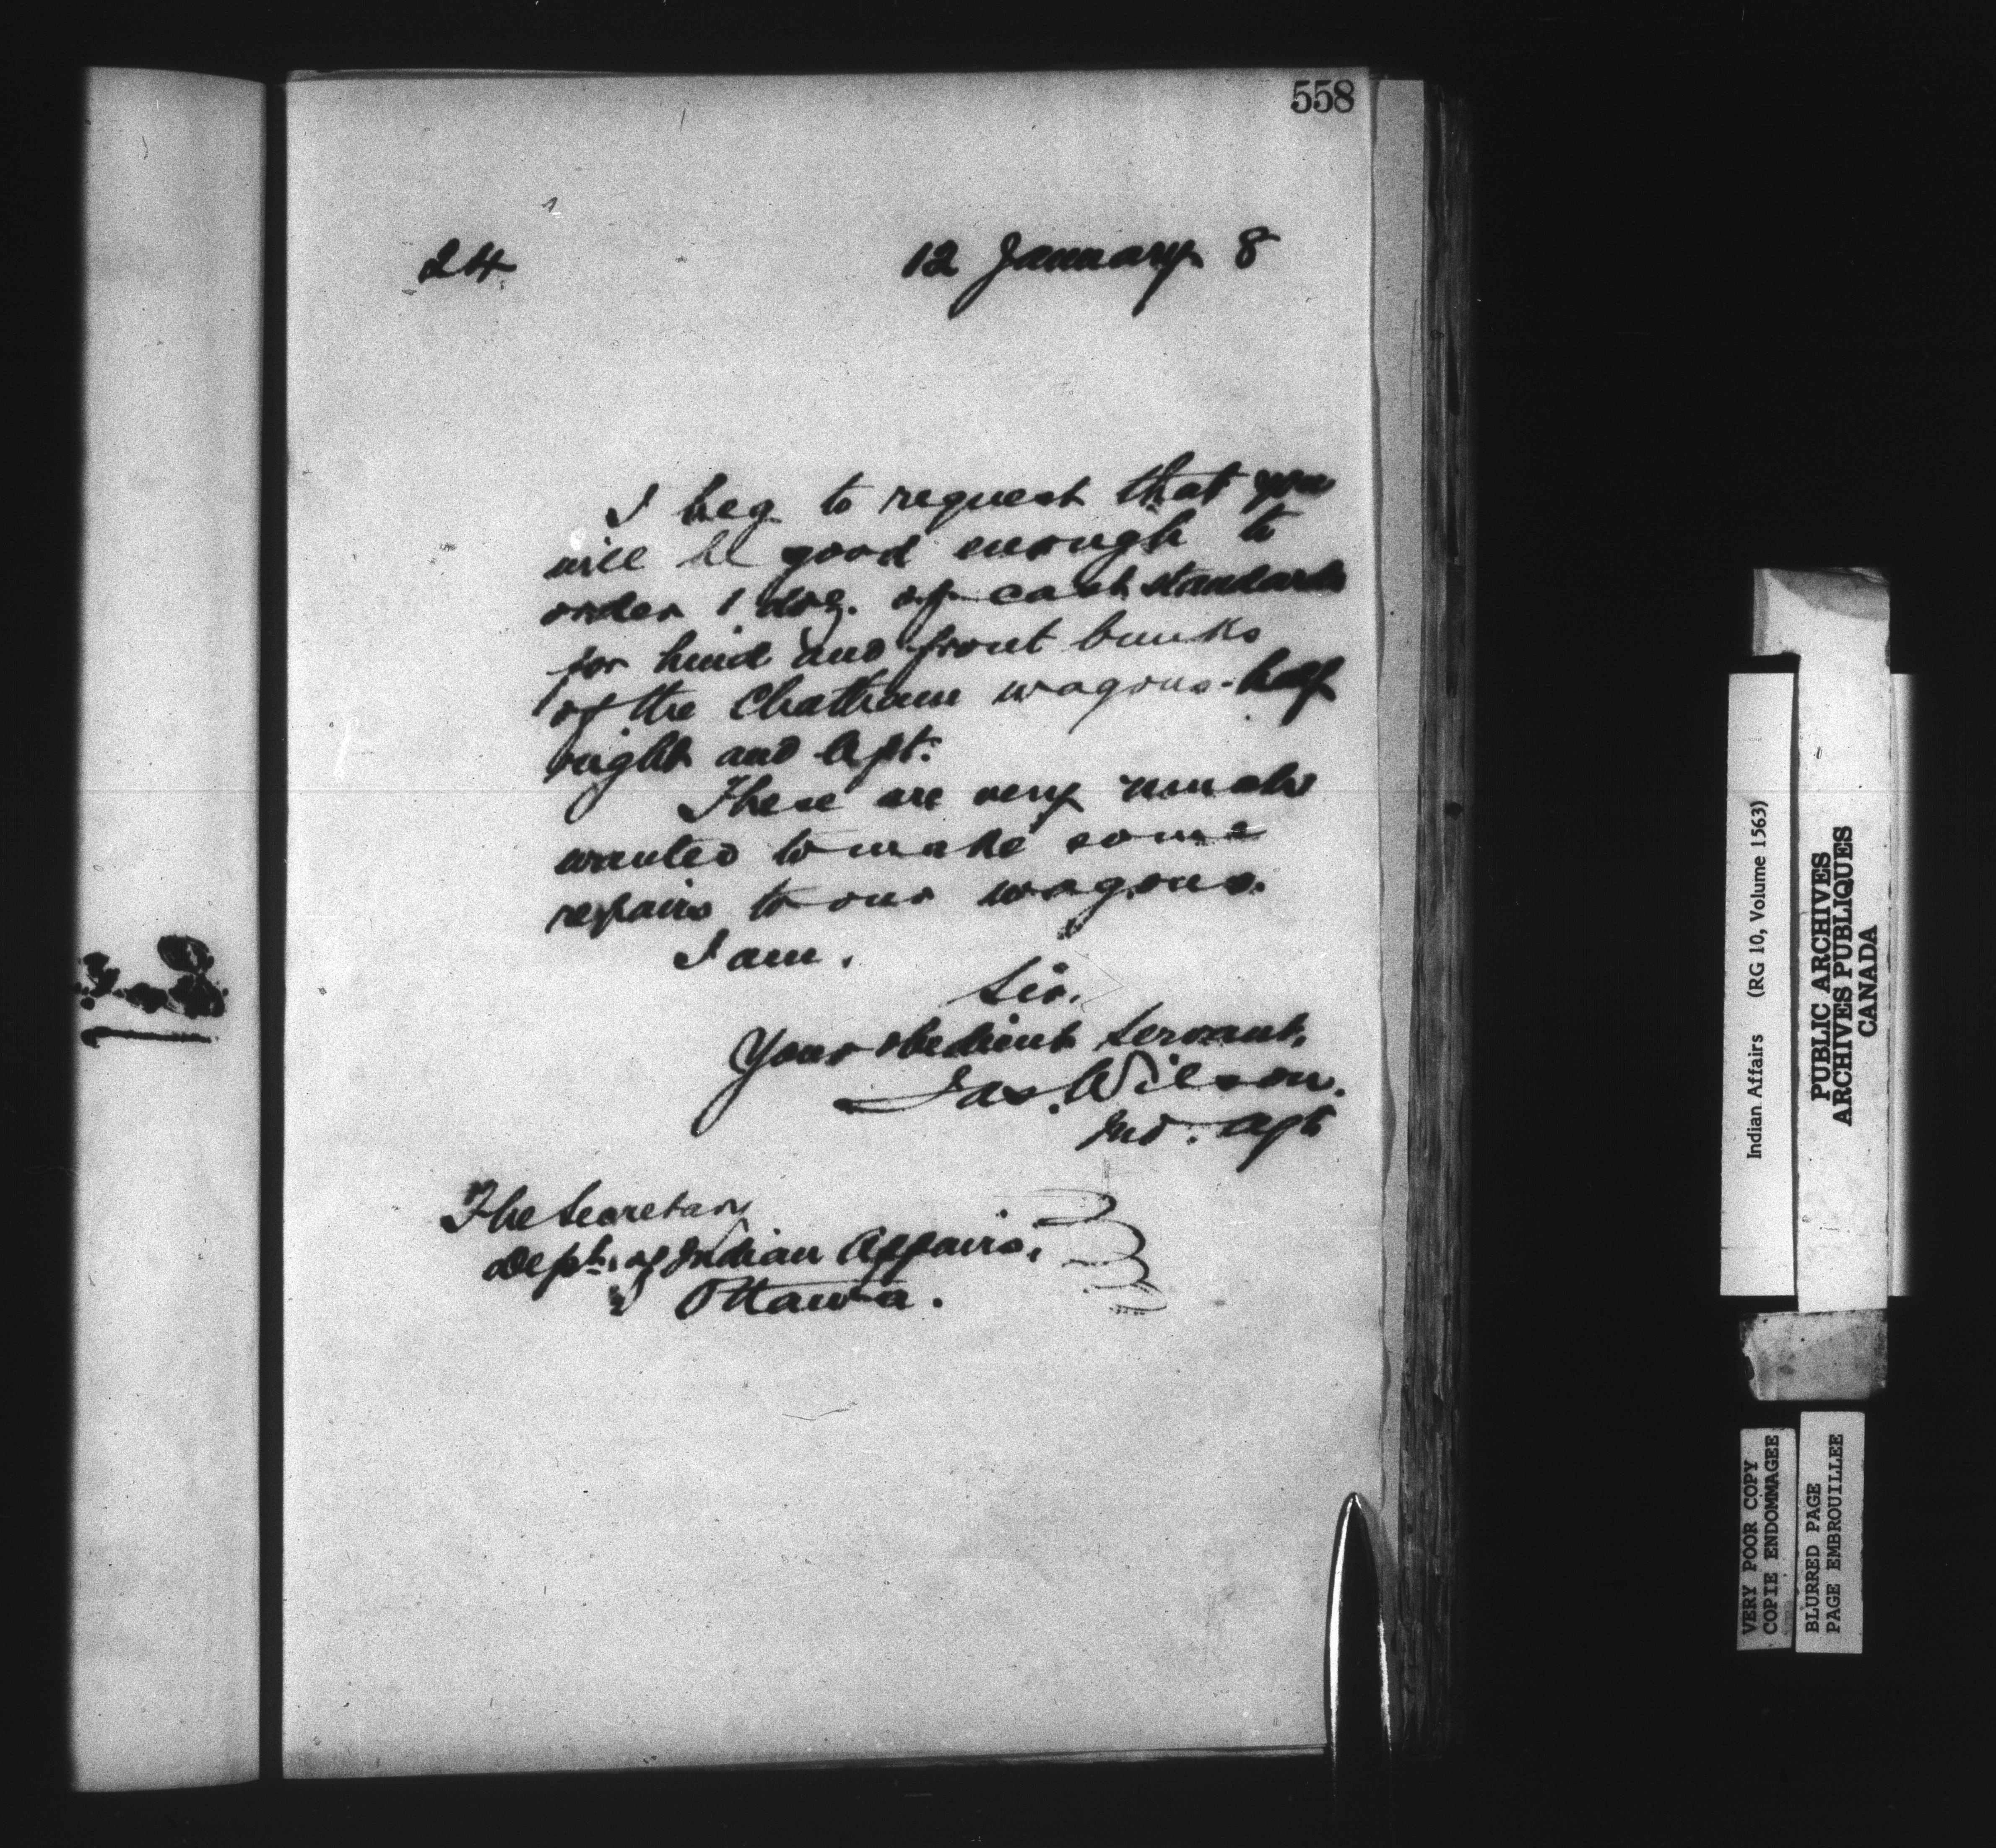 558
24
12 January 8
I beg to request that you
will be good enough to
order 1 doz. of cast standards
for hind and front bunks
of the Chatham wagons - half
right and left.
These are very much
wanted to make some
repairs to our wagons.
I am,
Sir,
Your obedient Servant,
Jas. Wilson.
Ind. Agt
The Secretary
Dept. of Indian Affairs,
Ottawa.
Indian Affairs (RG 10, Volume 1563)
PUBLIC ARCHIVES
ARCHIVES PUBLIQUES
CANADA
VERY POOR COPY
COPIE ENDOMMAGEE
BLURRED PAGE
PAGE EMBROUILLEE